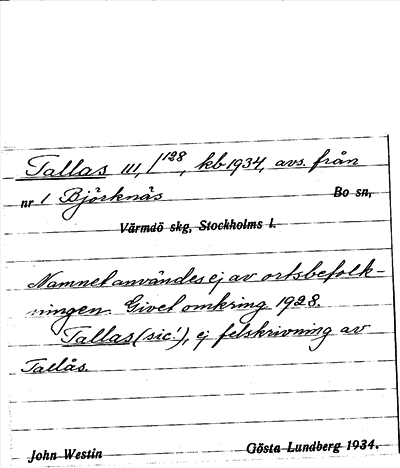 Tallas III, 1/128, kb 1934, avs. från
nr 1 Björknäs Bo sn,
Värmdö skg, Stockholms l.
Namnet användes ej av ortsbefolk-
ningen. Givet omkring 1928.
Tallas (sic!), ej felskrivning av
Tallås.
John Westin Gösta Lundberg 1934.